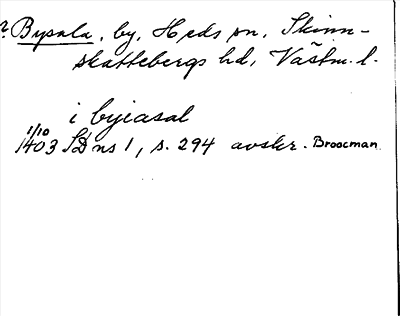 ? Bysala, by, Heds sn, Skinn-
skattebergs hd, Västm. l.
i byiasal
1/10
1403 SD ns 1, s. 294 avskr. Broocman